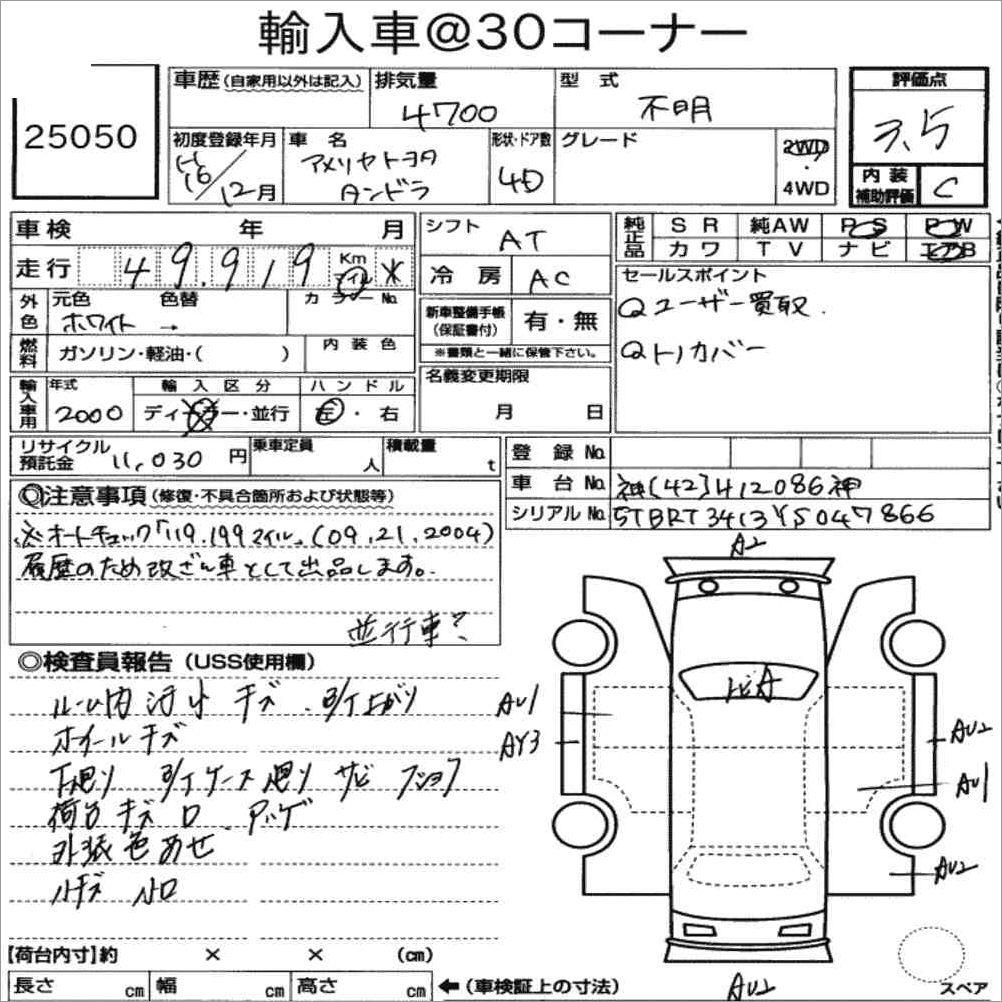 輸入車@30コーナー
25050
車歴(自家用以外は記入)
排気量
4700
型 式
不明
評価点
3.5
初度登録年月
H16/12月
車 名
アメリカトヨタ
タンドラ
形状・ドア数
4D
グレード
2WD
・
4WD
内 装
補助評価
C
車検 年 月
シフト
AT
純正品
SR 純AW PS PW
カワ TV ナビ エアB
走行
49,919
Km
マイル
*
冷 房
AC
セールスポイント
Qユーザー買取.
Qトノカバー
外色
元色
ホワイト
色替
→
カラーNo.
新車整備手帳
(保証書付)
有・無
※書類と一緒に保管下さい。
燃料
ガソリン・軽油・( )
内 装 色
輸入車用
年式
2000
輸 入 区 分
ディーラー・並行
ハ ン ド ル
左・右
名義変更期限
月 日
リサイクル
預託金
11,030 円
乗車定員
人
積載量
t
登 録 No.
車 台 No.
神[42]412086神
シリアルNo.
5TBRT3413YS047866
◎注意事項(修復・不具合箇所および状態等)
※オートチェック「119,199マイル」(09,21,2004)
履歴のため改ざん車として出品します。
並行車?
◎検査員報告(USS使用欄)
ルーム内汚れ キズ
ホイールキズ
下廻り サビ
荷台キズ
外装色あせ
A2
AU1
AY3
AU2
AU1
AU2
AU2
【荷台内寸】約 × × (cm)
長さ cm 幅 cm 高さ cm
←(車検証上の寸法)
スペア